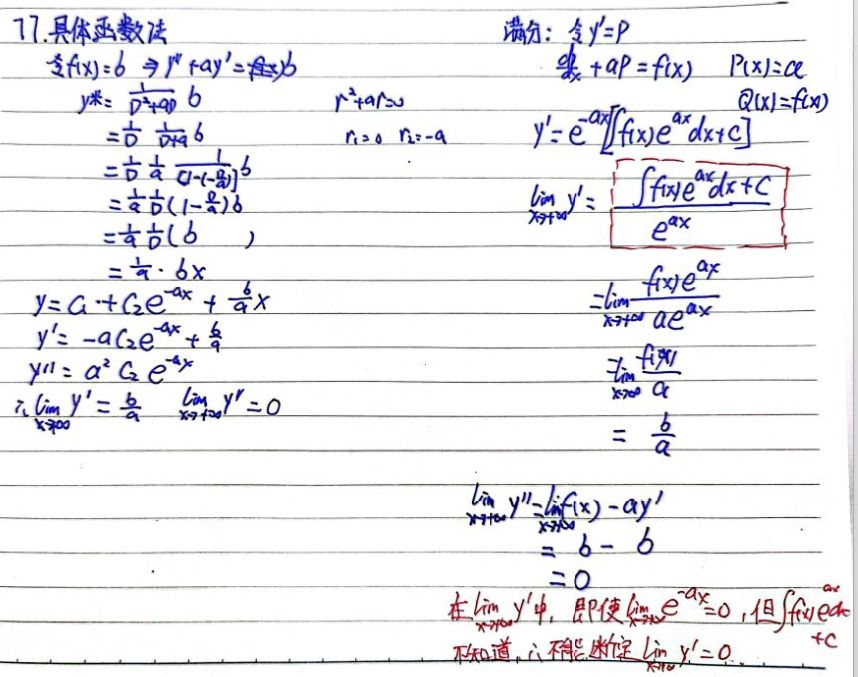 77.具体函数法
令f(x)=b ⇒ y''+ay'=b
y*= 1/(D²+aD) b
r²+ar=0
= 1/D 1/(D+a) b
r₁=0 r₂=-a
= 1/D 1/a 1/[1-(-D/a)] b
= 1/a 1/D (1-D/a)b
= 1/a 1/D (b )
= 1/a · bx
y=C₁+C₂e^(-ax) + b/a x
y'= -aC₂e^(-ax) + b/a
y''= a²C₂e^(-ax)
∴ lim x→+∞ y' = b/a lim x→+∞ y''=0
满分: 令y'=P
dp/dx +aP=f(x) P(x)=a
Q(x)=f(x)
y'=e^(-ax)[∫f(x)e^(ax)dx+C]
lim x→+∞ y'= (∫f(x)e^(ax)dx+C)/e^(ax)
=lim x→+∞ f(x)e^(ax)/(ae^(ax))
=lim x→+∞ f(x)/a
= b/a
lim x→+∞ y''=lim x→+∞ f(x)-ay'
= b-b
=0
在lim x→+∞ y'中, 即使lim x→+∞ e^(-ax)=0, 但∫f(x)e^(ax)dx
+C
不知道, ∴不能断定 lim x→+∞ y'=0.